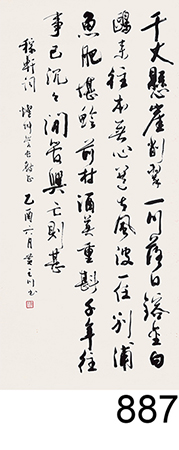 千丈懸崖削翠一川落日鎔金白
鷗来往本無心選甚風波一任別浦
魚肥堪鱠前村酒美重斟千年往
事已沉々閒管興亡則甚
稼軒詞
乙酉六月黃
887